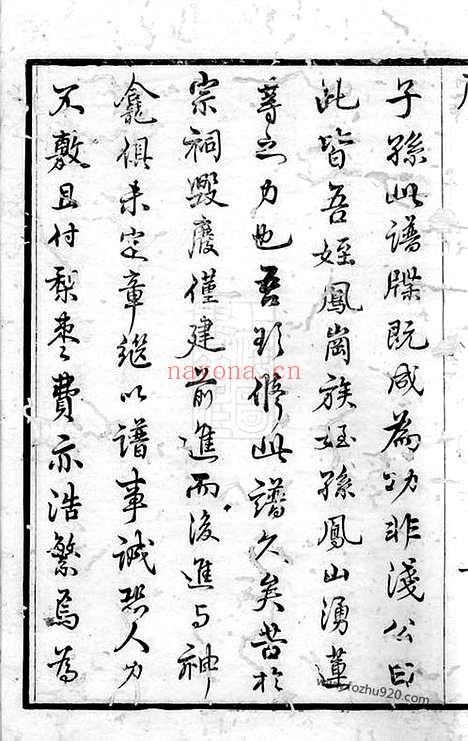 子孫此譜牒既成為功非淺公曰
此皆吾姪鳳崗族姪孫鳳山湧蓮
等之力也吾欲脩此譜久矣昔於
宗祠毀廢僅建前進而後進与神
龕俱未定章繼以譜事誠恐人力
不敷且付梨棗費亦浩繁焉為
nayona.cn
www.fozhu920.com